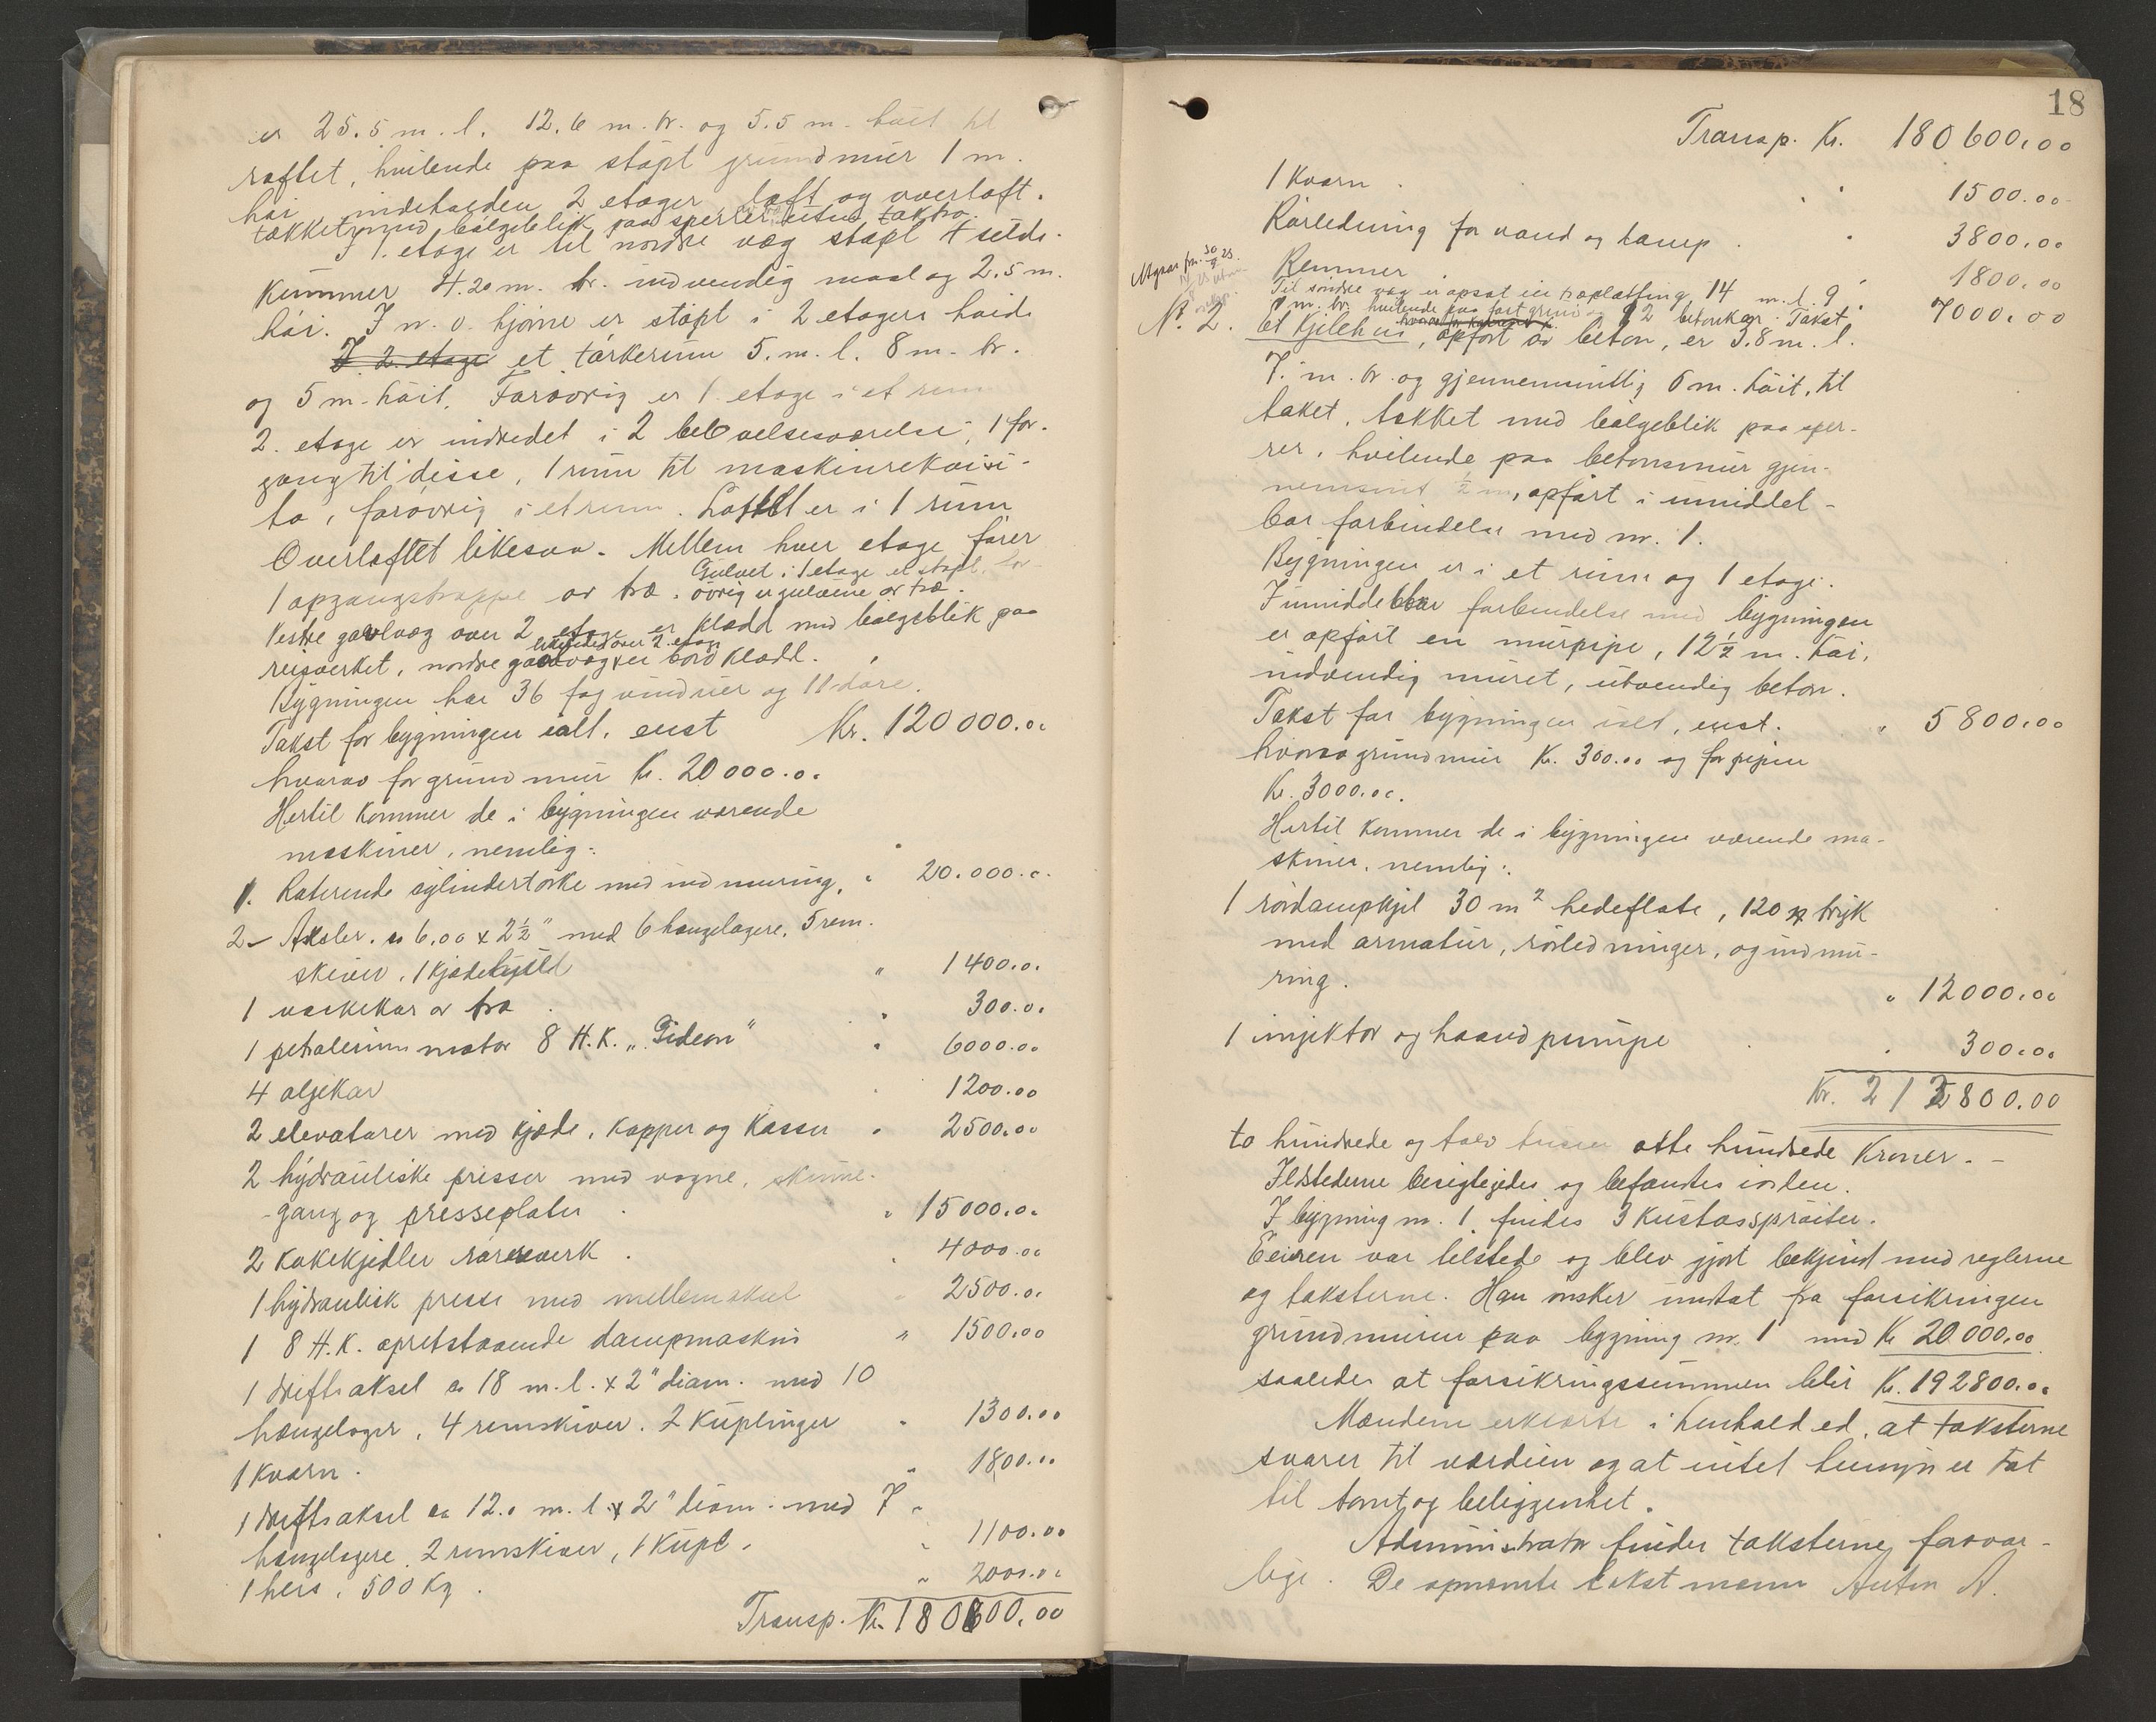 er 25.5 m. l. 12.6 m. br. og 5.5 m. høit til
raftet, hvilende paa støpt grundmur 1 m.
høi indeholden 2 etager loft og overloft.
tækket med bølgeblik paa sperrer
I 1. etage er til nordre væg støpt 4 silde-
kummer 4.20 m. br. indvendig maal og 2.5 m.
høi. I n. ø. hjørne er støpt i 2 etagers høide
I 2. etage et tørkerum 5. m. l. 8 m. br.
og 5 m. høit. Forøvrig er 1. etage i et rum
2. etage er indredet i 2 beboelsesværelser, 1 for-
gang til disse, 1 rum til maskinrekvisi-
ta, forøvrig i et rum. Loftet er i 1 rum
Overloftet likesaa. Mellem hver etage fører
Gulvet i 1 etage er støpt. for-
1 opgangstrappe av træ. øvrig er gulvene av træ.
Vestre gavlvæg over 2 etage er klædd med bølgeblik paa
over 2. etage
reisverket, nordre gavlvæg er bord klædd.
Bygningen har 36 fag vinduer og 11 døre.
Takst for bygningen ialt, enst Kr. 120 000.00
hvorav for grundmur Kr. 20 000.00
Hertil kommer de i bygningen værende
maskiner, nemlig:
1. Roterende sylindertørke med indmuring, " 20.000.00
2 - Aksler. a 6,00 x 2½" med 6 hængelagere, 5 rem-
skiver, 1 kjedehjul " 1400.00
1 vaskekar av træ " 300.00
1 petroleums motor 8 H.K. "Gideon" " 6000.00
4 oljekar 1200.00
2 elevatorer med kjede, kopper og kasser " 2500.00
2 hydrauliske presser med vogne, skinne-
-gang og presseplater " 15000.00
2 kokekjedler røreverk 4000.00
1 hydraulisk presse med mellemaksel 2500.00
1 8 H.K. opretstaaende dampmaskin " 1500.00
1 driftsaksel a 18 m. l. x 2" diam. med 10
hængelager, 4 remskiver. 2 kuplinger " 1300.00
1 kværn. " 1800.00
1 driftsaksel a 12.0 m. l. x 2" diam. med 7
hængelagere, 2 remskiver, 1 kupl. " 1100.00
1 heis, 500 kg. " 2000.00
Transp. Kr. 180600.00
18
Transp. Kr. 180600.00
1 kværn 1500.00
Rørledning for vand og damp " 3800.00
Remmer 1800.00
Til søndre væg er opsat en træplatting, 14 m. l. 9
m. br. hvilende paa fast grund og 12 betonkar. Takst 7000.00
Nr. 2. Et kjelehus, opført av beton, er 3.8 m. l.
7. m. br. og gjennemsnittlig 6 m. høit, til
taket, tækket med bølgeblik paa sper-
rer, hvilende paa betonsmur gjen-
nemsnit ½ m, opført i umiddel-
bar forbindelse med nr. 1.
Bygningen er i et rum og 1 etage.
I umiddelbar forbindelse med bygningen
er opført en murpipe, 12½ m. høi,
indvendig muret, utvendig beton.
Takst for bygningen ialt, enst. " 5800.00
hvorav grundmur Kr. 300.00 og for pipen
Kr. 3000.00.
Hertil kommer de i bygningen værende ma-
skiner, nemlig:
1 rørdampkjel 30 m² hedeflate, 120 tryk
med armatur, rørledninger, og indmu-
ring. " 12000.00
1 injektor og haandpumpe " 300.00
Kr. 212800.00
to hundrede og tolv tusen otte hundrede Kroner. -
Ildstederne besigtigedes og befandtes iorden.
I bygning nr. 1 findes 3 Kustosspröiter.
Eieren var tilstede og blev gjort bekjendt med reglerne
og taksterne. Han ønsker undtat fra forsikringen
grundmuren paa bygning nr. 1 med Kr 20.000,00
saaledes at forsikringssummen blir Kr. 192800.00
Mændene erklærte i henhold ed, at taksterne
svarer til værdien og at intet hensyn er tat
til tomt og beliggenhet.
Administrator finder taksterne forsvar-
lige. De opnævnte takstmænn Anton A.